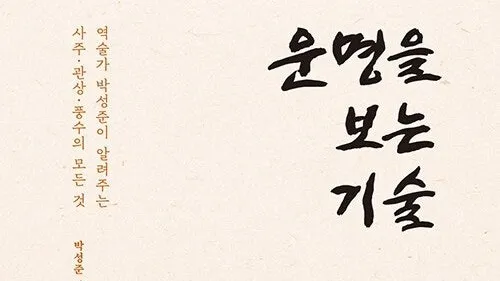 운명을
보는
기술
역술가 박성준이 알려주는
사주·관상·풍수의 모든 것
박성준